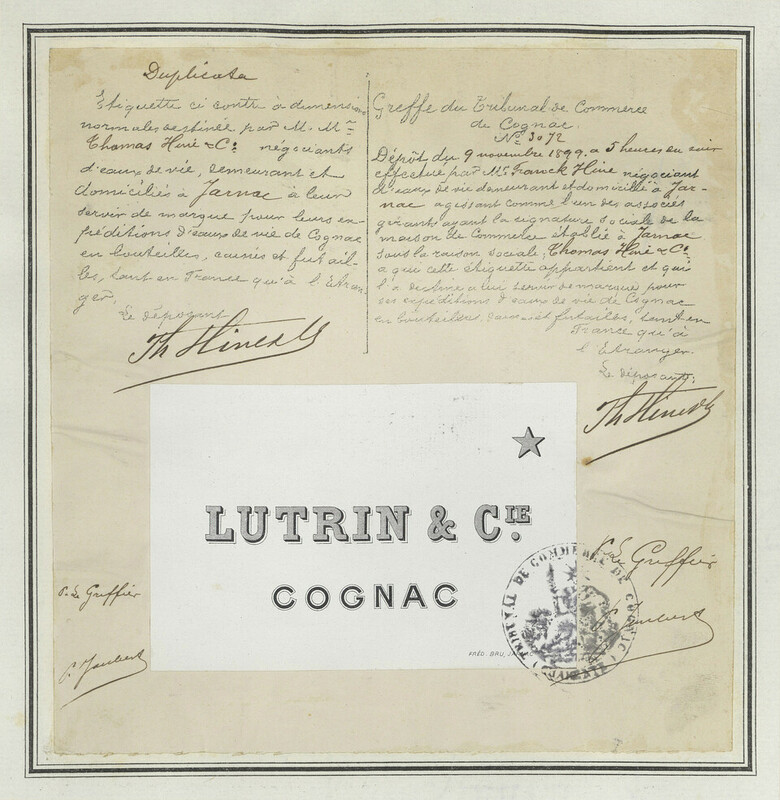 Duplicata
Etiquette ci contre à dimensions
normales destinée par M. Mrs
Thomas Hine & Co. négociants
d'eaux de vie, demeurant et
domiciliés à Jarnac à leur
servir de marque pour leurs ex-
péditions d'eaux de vie de Cognac
en bouteilles, caisses et futail-
les, tant en France qu'à l'Etran-
ger.
Le déposant
Th Hine & Co
Greffe du Tribunal de Commerce
de Cognac.
No 3072
Dépôt du 9 novembre 1899 a 5 heures du soir
effectué par Mr. Franck Hine négociant
d'eaux de vie demeurant et domicilié à Jar-
nac agissant comme l'un des associés
gérants ayant la signature sociale de la
maison de Commerce établie à Jarnac
sous la raison sociale; Thomas Hine & Co.
a qui cette étiquette appartient et qui
l'a destine a lui servir de marque pour
ses expéditions d'eaux de vie de Cognac
en bouteilles, caisses et futailles, tant en
France qu'à
l'Etranger.
Le déposant;
Th Hine & Co
LUTRIN & CIE.
COGNAC
FRÉD. BRU, JARNAC
TRIBUNAL DE COMMERCE DE COGNAC
P. Le Greffier
P. Le Greffier